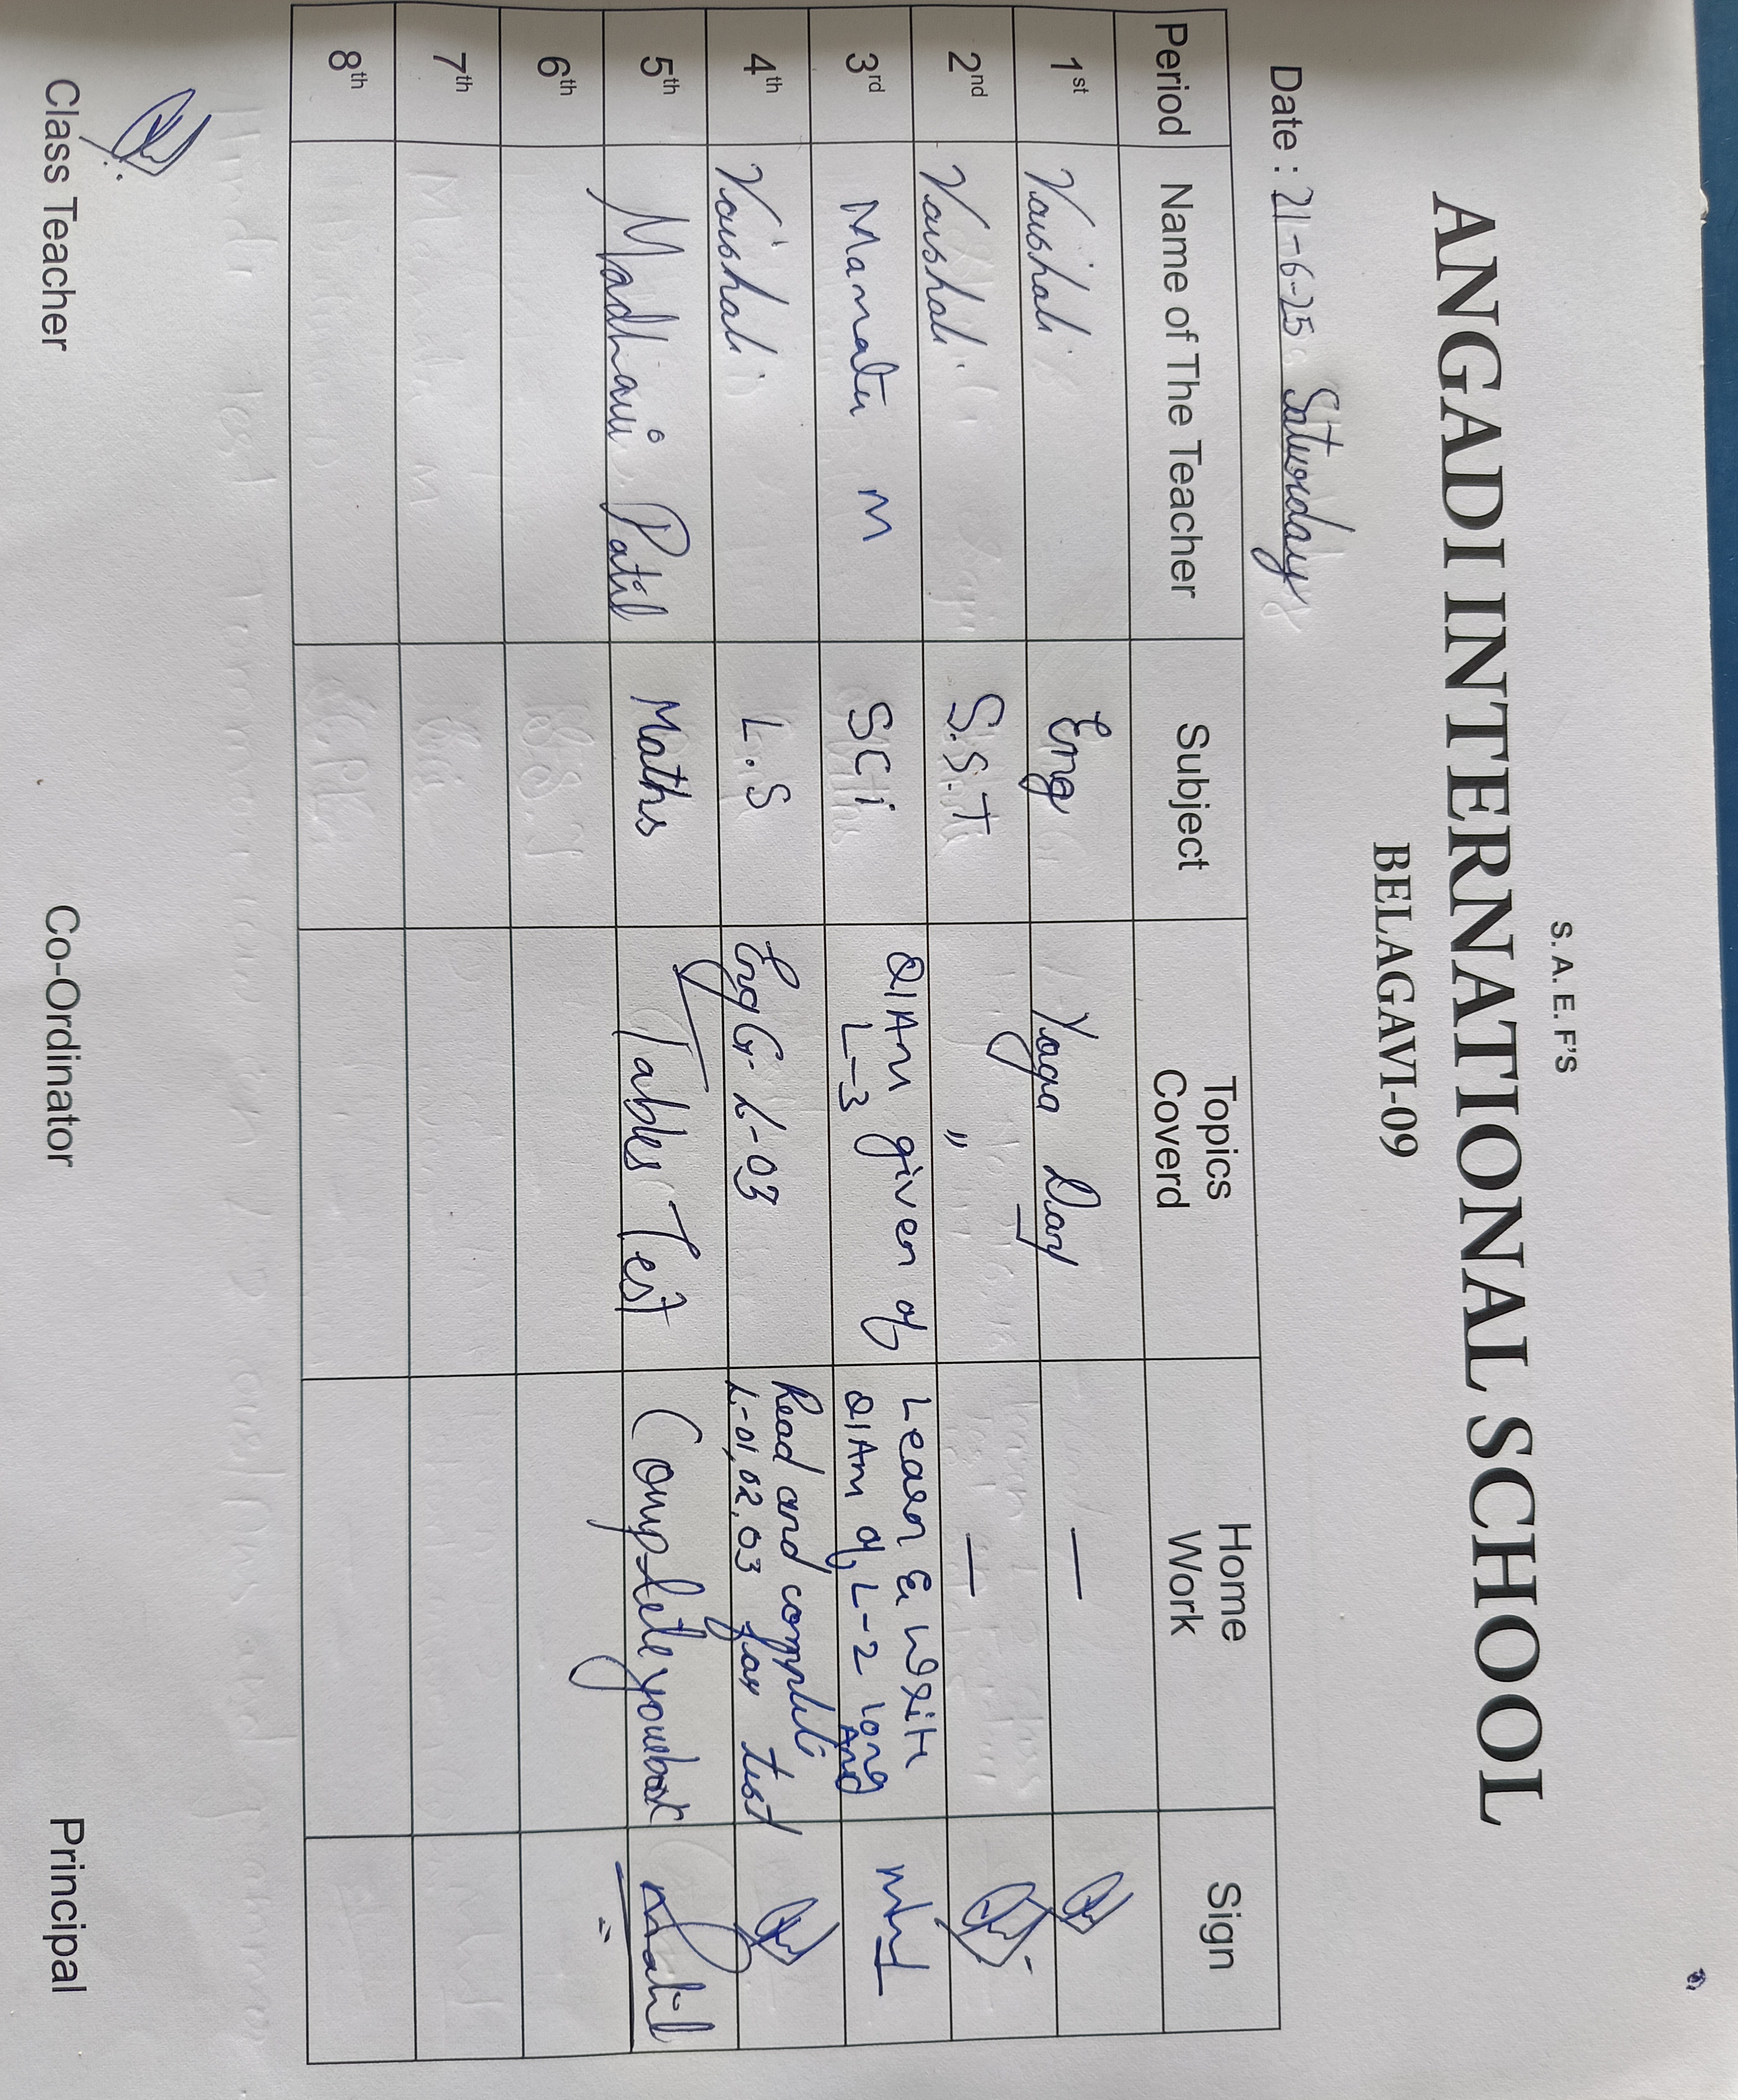 S. A. E. F'S
ANGADI INTERNATIONAL SCHOOL
BELAGAVI-09
Date : 21-6-25 Saturday
Period Name of The Teacher Subject Topics Coverd Home Work Sign
1st Vaishali Eng Yoga Day —
2nd Vaishali S.S.T " —
3rd Mamata M SCi Q/Ans given of L-3 Learn & Write Q/Ans of L-2 long And
4th Vaishali L.S Eng Gr L-03 Read and complete L-01,02,03 for test
5th Madhavi Patil Maths Tables Test Complete yourbook
6th
7th
8th
Class Teacher Co-Ordinator Principal